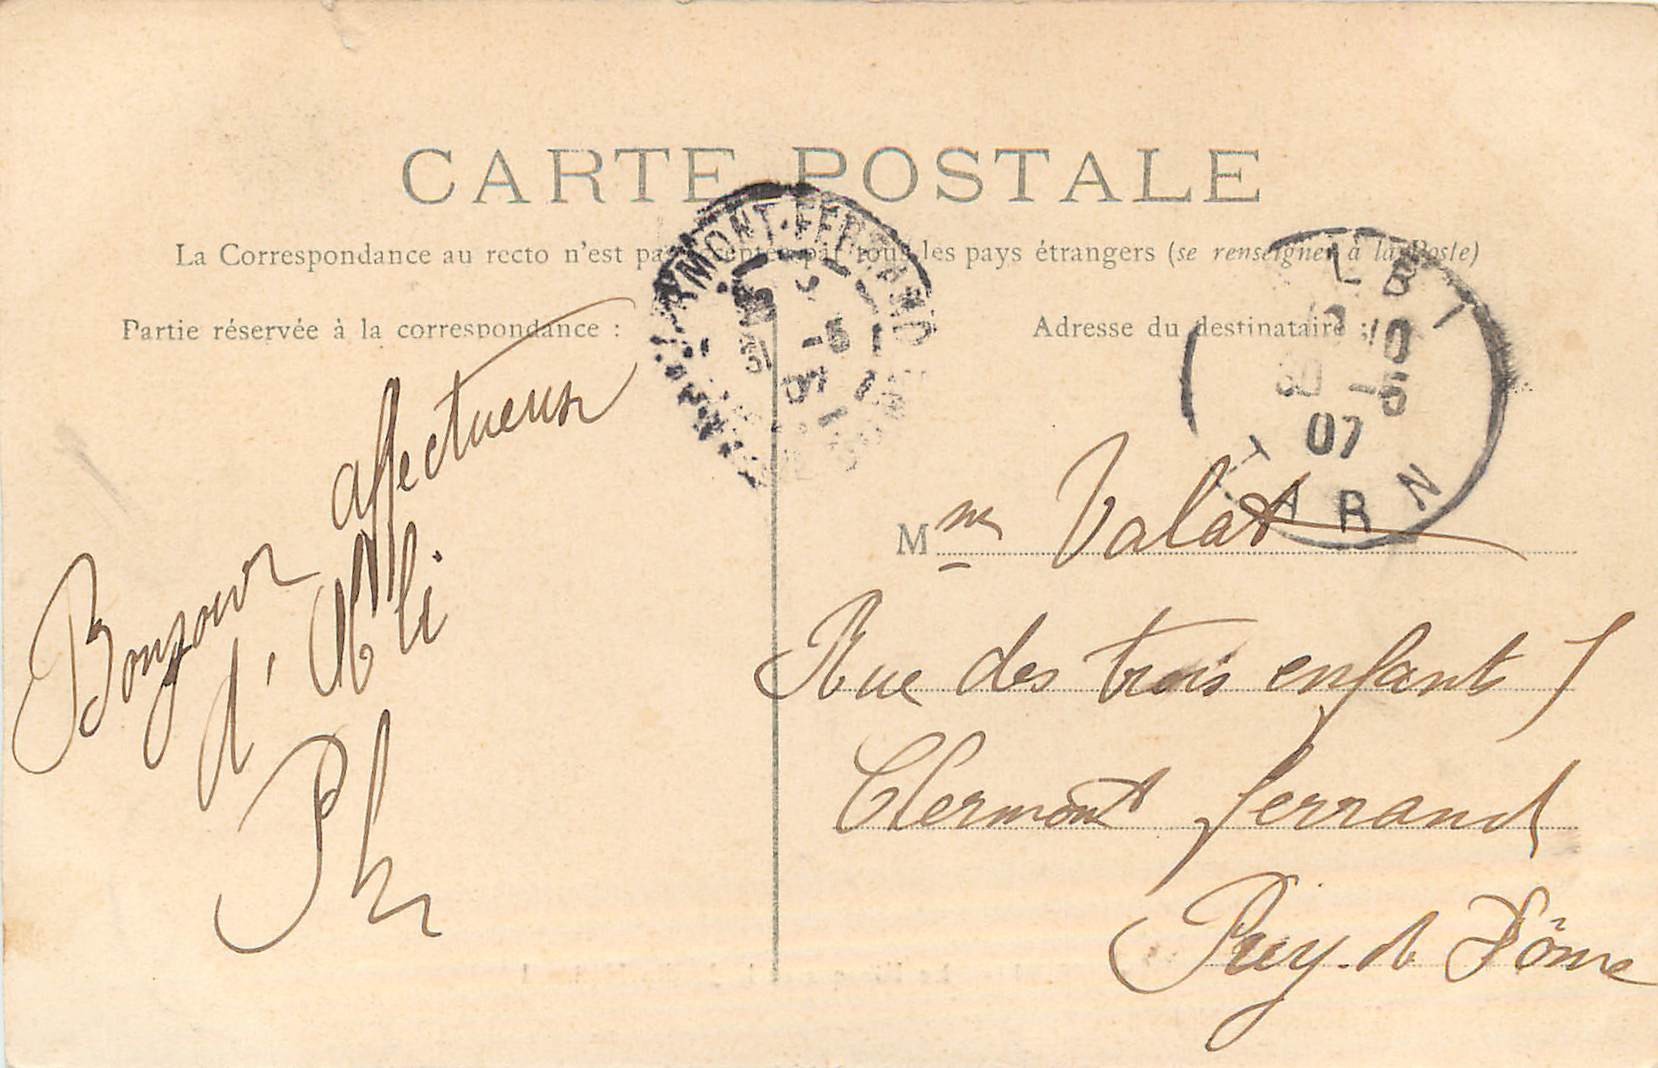 CARTE POSTALE
La Correspondance au recto n'est pas acceptée par tous les pays étrangers (se renseigner à la Poste)
Partie réservée à la correspondance :
Adresse du destinataire :
CLERMONT-FERRAND
31 -5
07
ALBI
30 -5
07
TARN
Bonjour affectueux
d'Albi
Ph
Mme Valat
Rue des trois enfants
Clermont ferrand
Puy-de Dôme